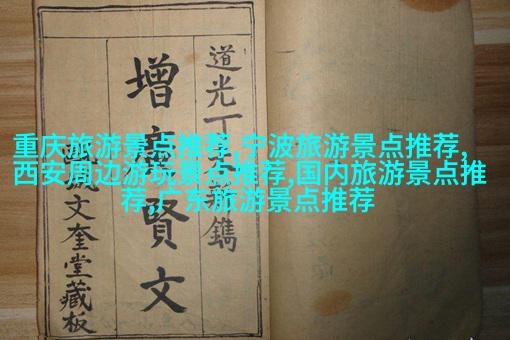 重庆旅游景点推荐,宁波旅游景点推荐,
西安周边游玩景点推荐,国内旅游景点推
荐,广东旅游景点推荐
道光丁鐫
增廣賢文
文奎堂藏板